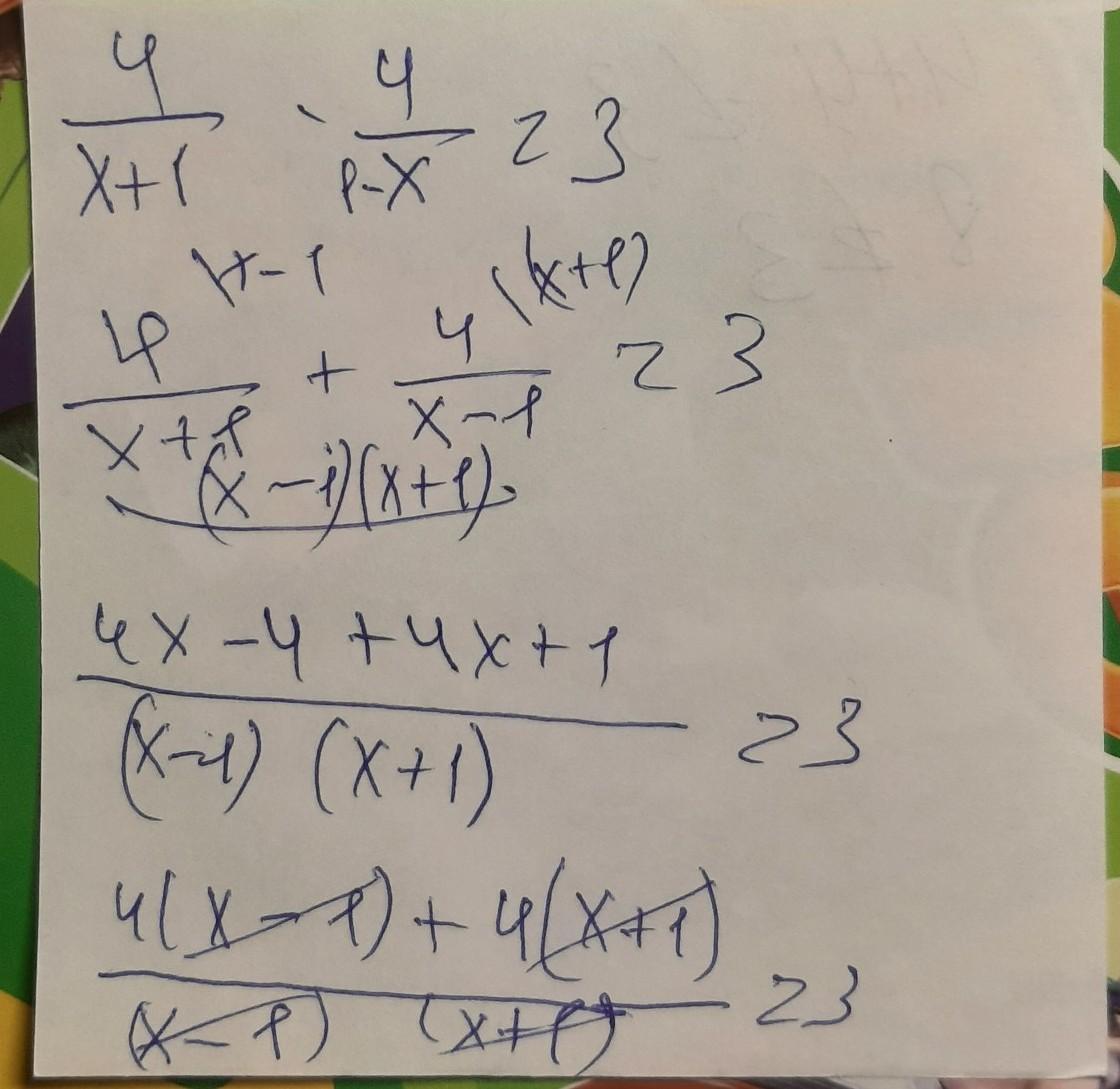 4 - 4
x+1 1-x ≥ 3
\x-1 \(x+1)
4 + 4 ≥ 3
x+1 x-1
(x-1)(x+1)
4x-4+4x+1
(x-1) (x+1) ≥ 3
4(x-1)+4(x+1)
(x-1) (x+1) ≥ 3